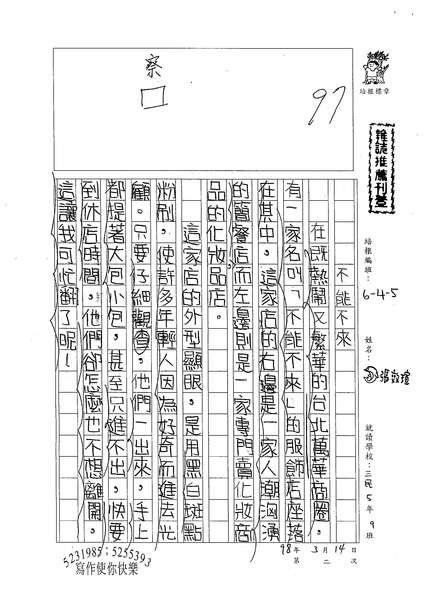 察
97
培根標章
雜誌推薦刊登
培根編班：6-4-5
姓名：
就讀學校：三民5年9班
98年3月14日
第二次
不能不來
在既熱鬧又繁華的台北萬華商圈，
有一家名叫「不能不來」的服飾店座落
在其中。這家店的右邊是一家人潮洶湧
的簡餐店而左邊則是一家專門賣化妝商
品的化妝品店。
這家店的外型顯眼，是用黑白斑點
粉刷，使許多年輕人因為好奇而進去光
顧。只要仔細觀查，他們一出來，手上
都提著大包小包，甚至只進不出，快要
到休店時間，他們卻怎麼也不想離開。
這讓我可忙翻了呢！
5231985；5255393
寫作使你快樂